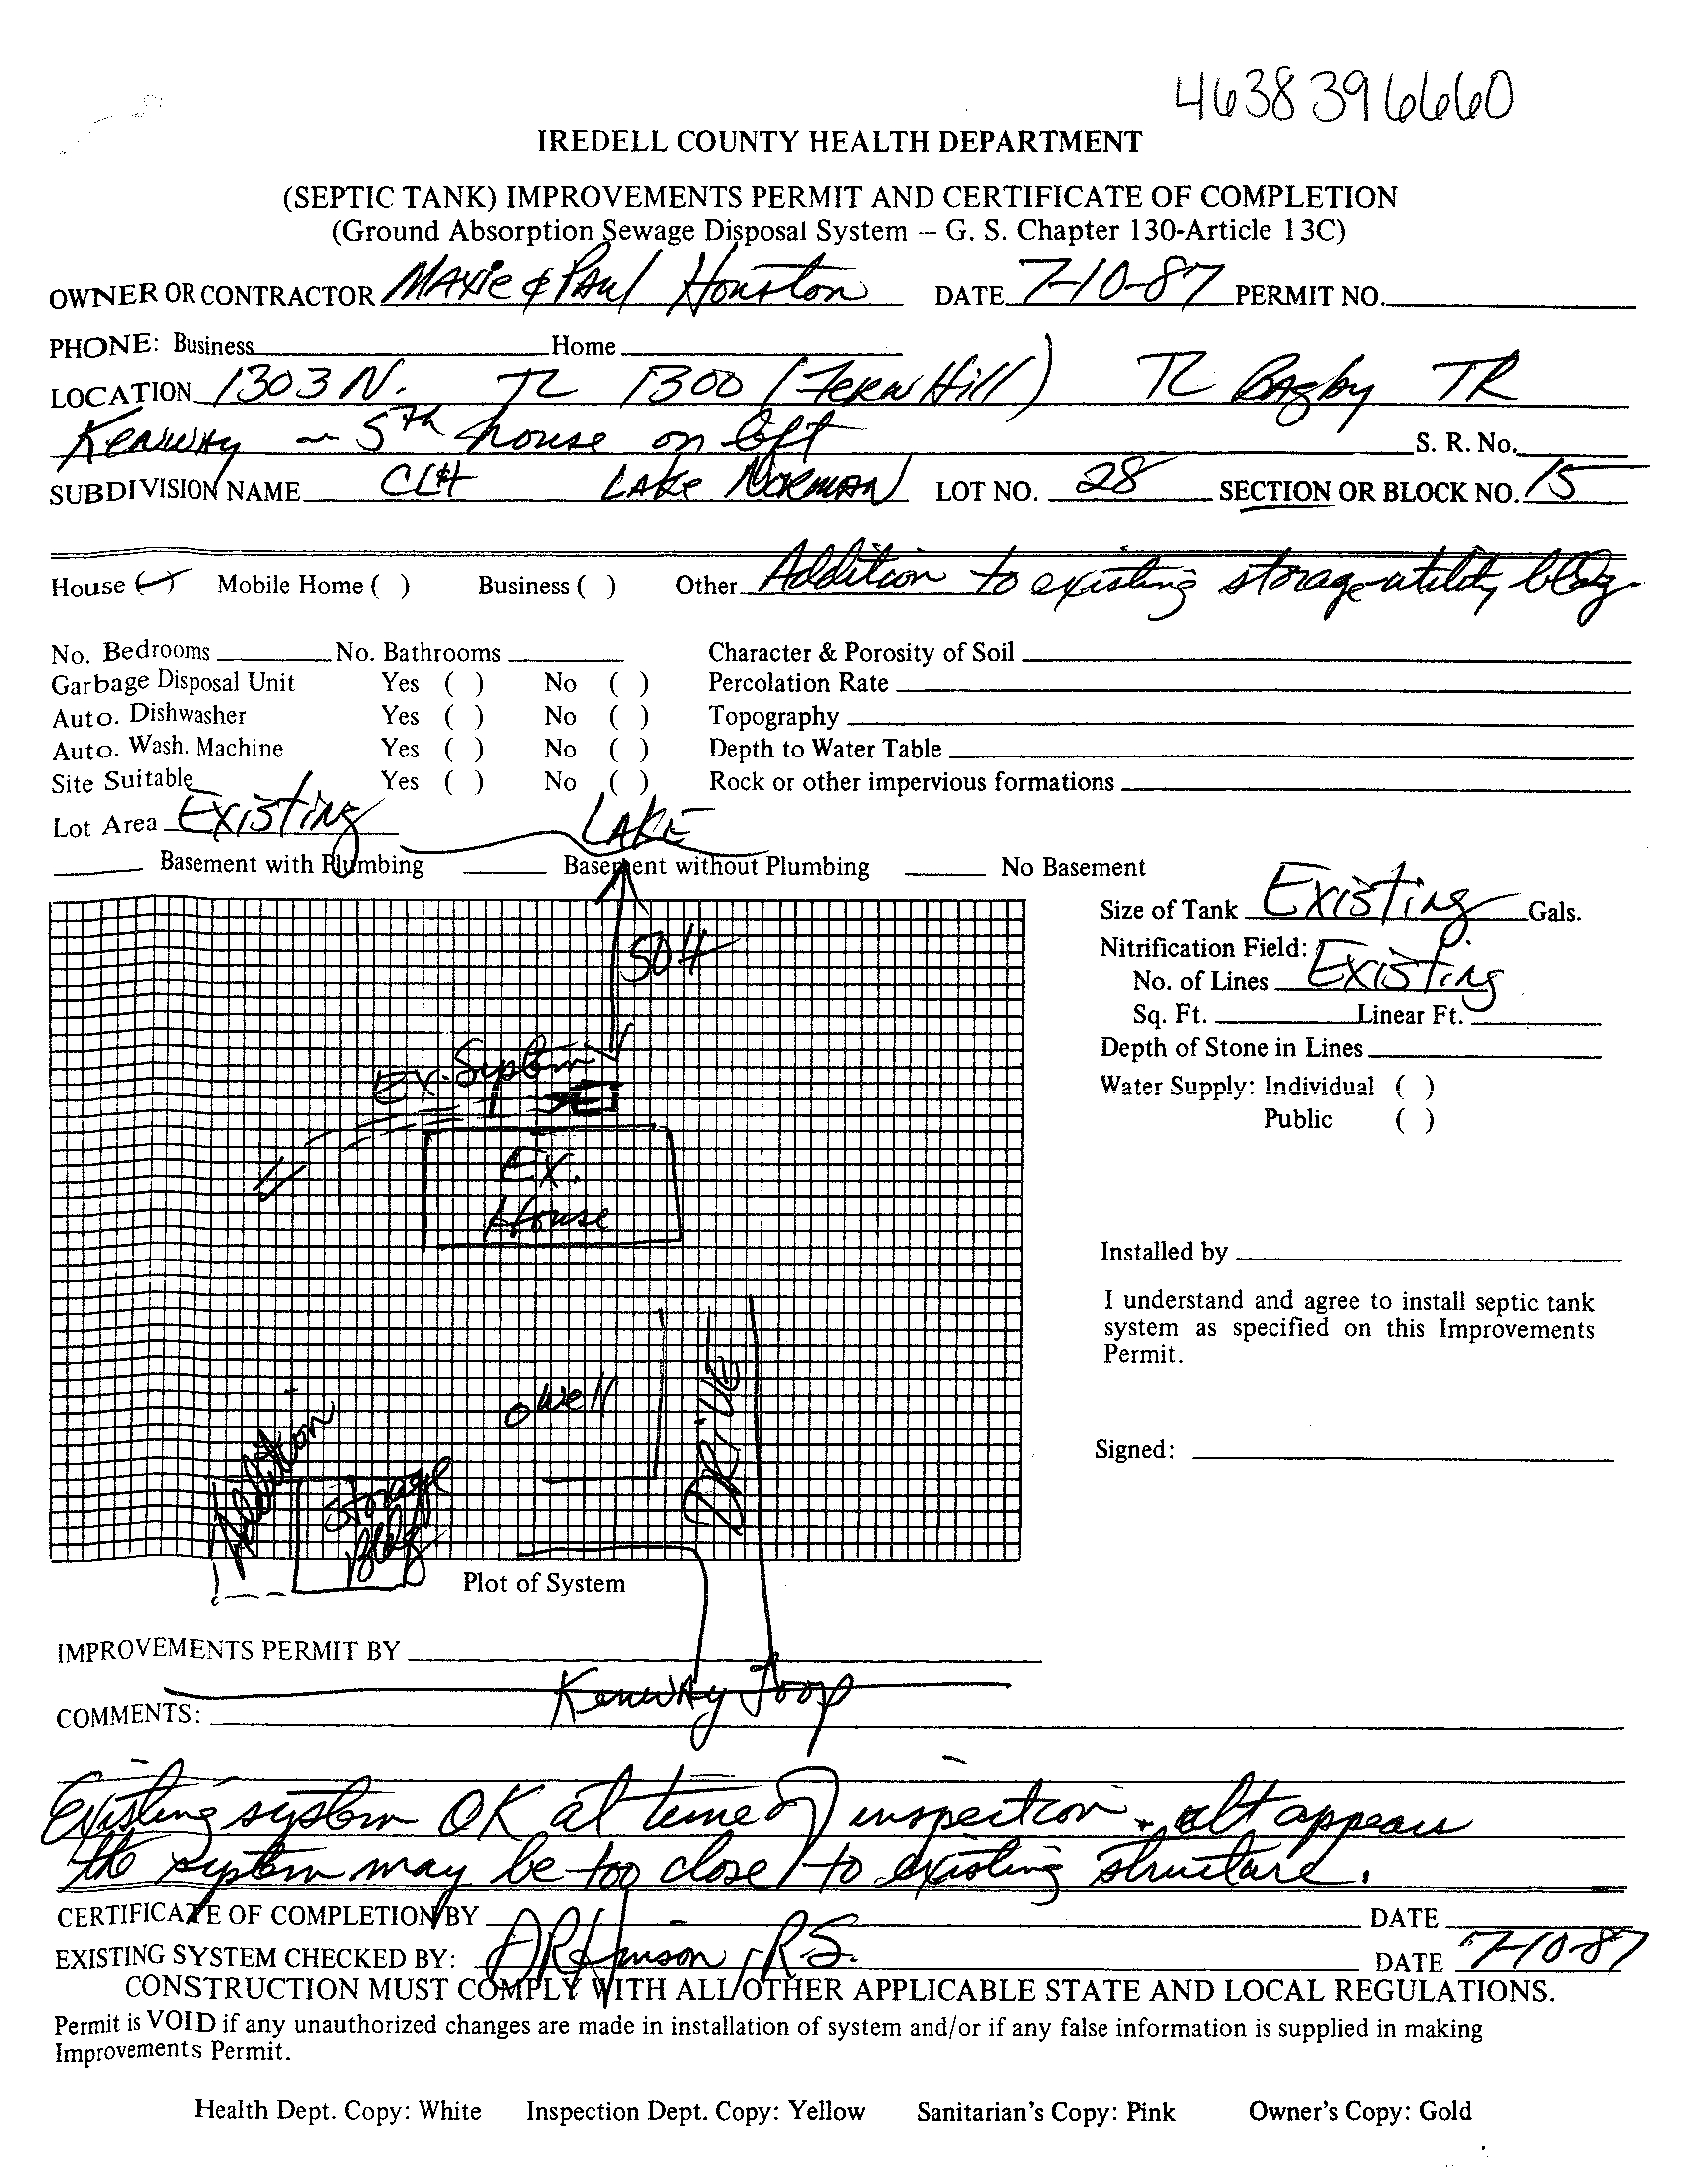 4638396660
IREDELL COUNTY HEALTH DEPARTMENT
(SEPTIC TANK) IMPROVEMENTS PERMIT AND CERTIFICATE OF COMPLETION
(Ground Absorption Sewage Disposal System – G. S. Chapter 130-Article 13C)
OWNER OR CONTRACTOR Maxie & Paul Houston DATE 7-10-87 PERMIT NO.
PHONE: Business Home
LOCATION 1303 N. TL 1300 (Fern Hill) TL Bagby TR
Kenway – 5th house on left S. R. No.
SUBDIVISION NAME CLH Lake Norman LOT NO. 28 SECTION OR BLOCK NO. 15
House (✓) Mobile Home ( ) Business ( ) Other Addition to existing storage-utility bldg
No. Bedrooms No. Bathrooms Character & Porosity of Soil
Garbage Disposal Unit Yes ( ) No ( ) Percolation Rate
Auto. Dishwasher Yes ( ) No ( ) Topography
Auto. Wash. Machine Yes ( ) No ( ) Depth to Water Table
Site Suitable Yes ( ) No ( ) Rock or other impervious formations
Lot Area Existing LAKE
Basement with Plumbing Basement without Plumbing No Basement
Size of Tank Existing Gals.
50 ft
Nitrification Field:
No. of Lines Existing
Sq. Ft. Linear Ft.
Ex. System
Depth of Stone in Lines
Water Supply: Individual ( )
Public ( )
Ex.
House
Installed by
I understand and agree to install septic tank
system as specified on this Improvements
Permit.
o well
DRIVE
Addition
Storage
Bldg
Signed:
Plot of System
IMPROVEMENTS PERMIT BY
Kenway Loop
COMMENTS:
Existing system OK at time of inspection. alt appears
the system may be too close to existing structure.
CERTIFICATE OF COMPLETION BY DATE
EXISTING SYSTEM CHECKED BY: R.S. DATE 7-10-87
CONSTRUCTION MUST COMPLY WITH ALL OTHER APPLICABLE STATE AND LOCAL REGULATIONS.
Permit is VOID if any unauthorized changes are made in installation of system and/or if any false information is supplied in making
Improvements Permit.
Health Dept. Copy: White Inspection Dept. Copy: Yellow Sanitarian's Copy: Pink Owner's Copy: Gold